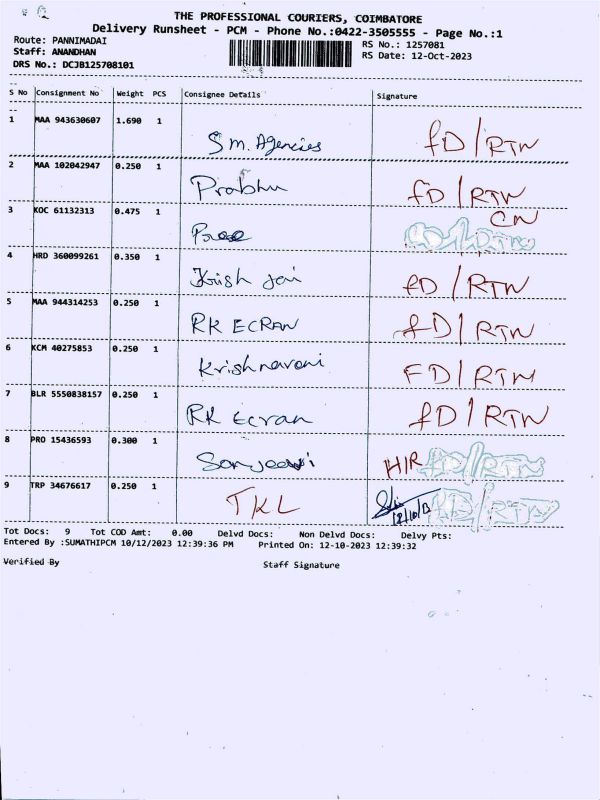 THE PROFESSIONAL COURIERS, COIMBATORE
Delivery Runsheet - PCM - Phone No.:0422-3505555 - Page No.:1
Route: PANNIMADAI RS No.: 1257081
Staff: ANANDHAN RS Date: 12-Oct-2023
DRS No.: DCJB125708101
S No Consignment No Weight PCS Consignee Details Signature
1 MAA 943630607 1.690 1 Sm. Agencies fD/RTN
2 MAA 102042947 0.250 1 Prabhu fD/RTN
CN
3 KOC 61132313 0.475 1
4 HRD 360099261 0.350 1 Krish Jai fD/RTN
5 MAA 944314253 0.250 1 RK ECRAN fD/RTN
6 KCM 40275853 0.250 1 Krishnaveni FD/RTN
7 BLR 5550838157 0.250 1 RK Ecran fD/RTN
8 PRO 15436593 0.300 1 Sanjeevi H/R
9 TRP 34676617 0.250 1 TKL
Tot Docs: 9 Tot COD Amt: 0.00 Delvd Docs: Non Delvd Docs: Delvy Pts:
Entered By :SUMATHIPCM 10/12/2023 12:39:36 PM Printed On: 12-10-2023 12:39:32
Verified By Staff Signature